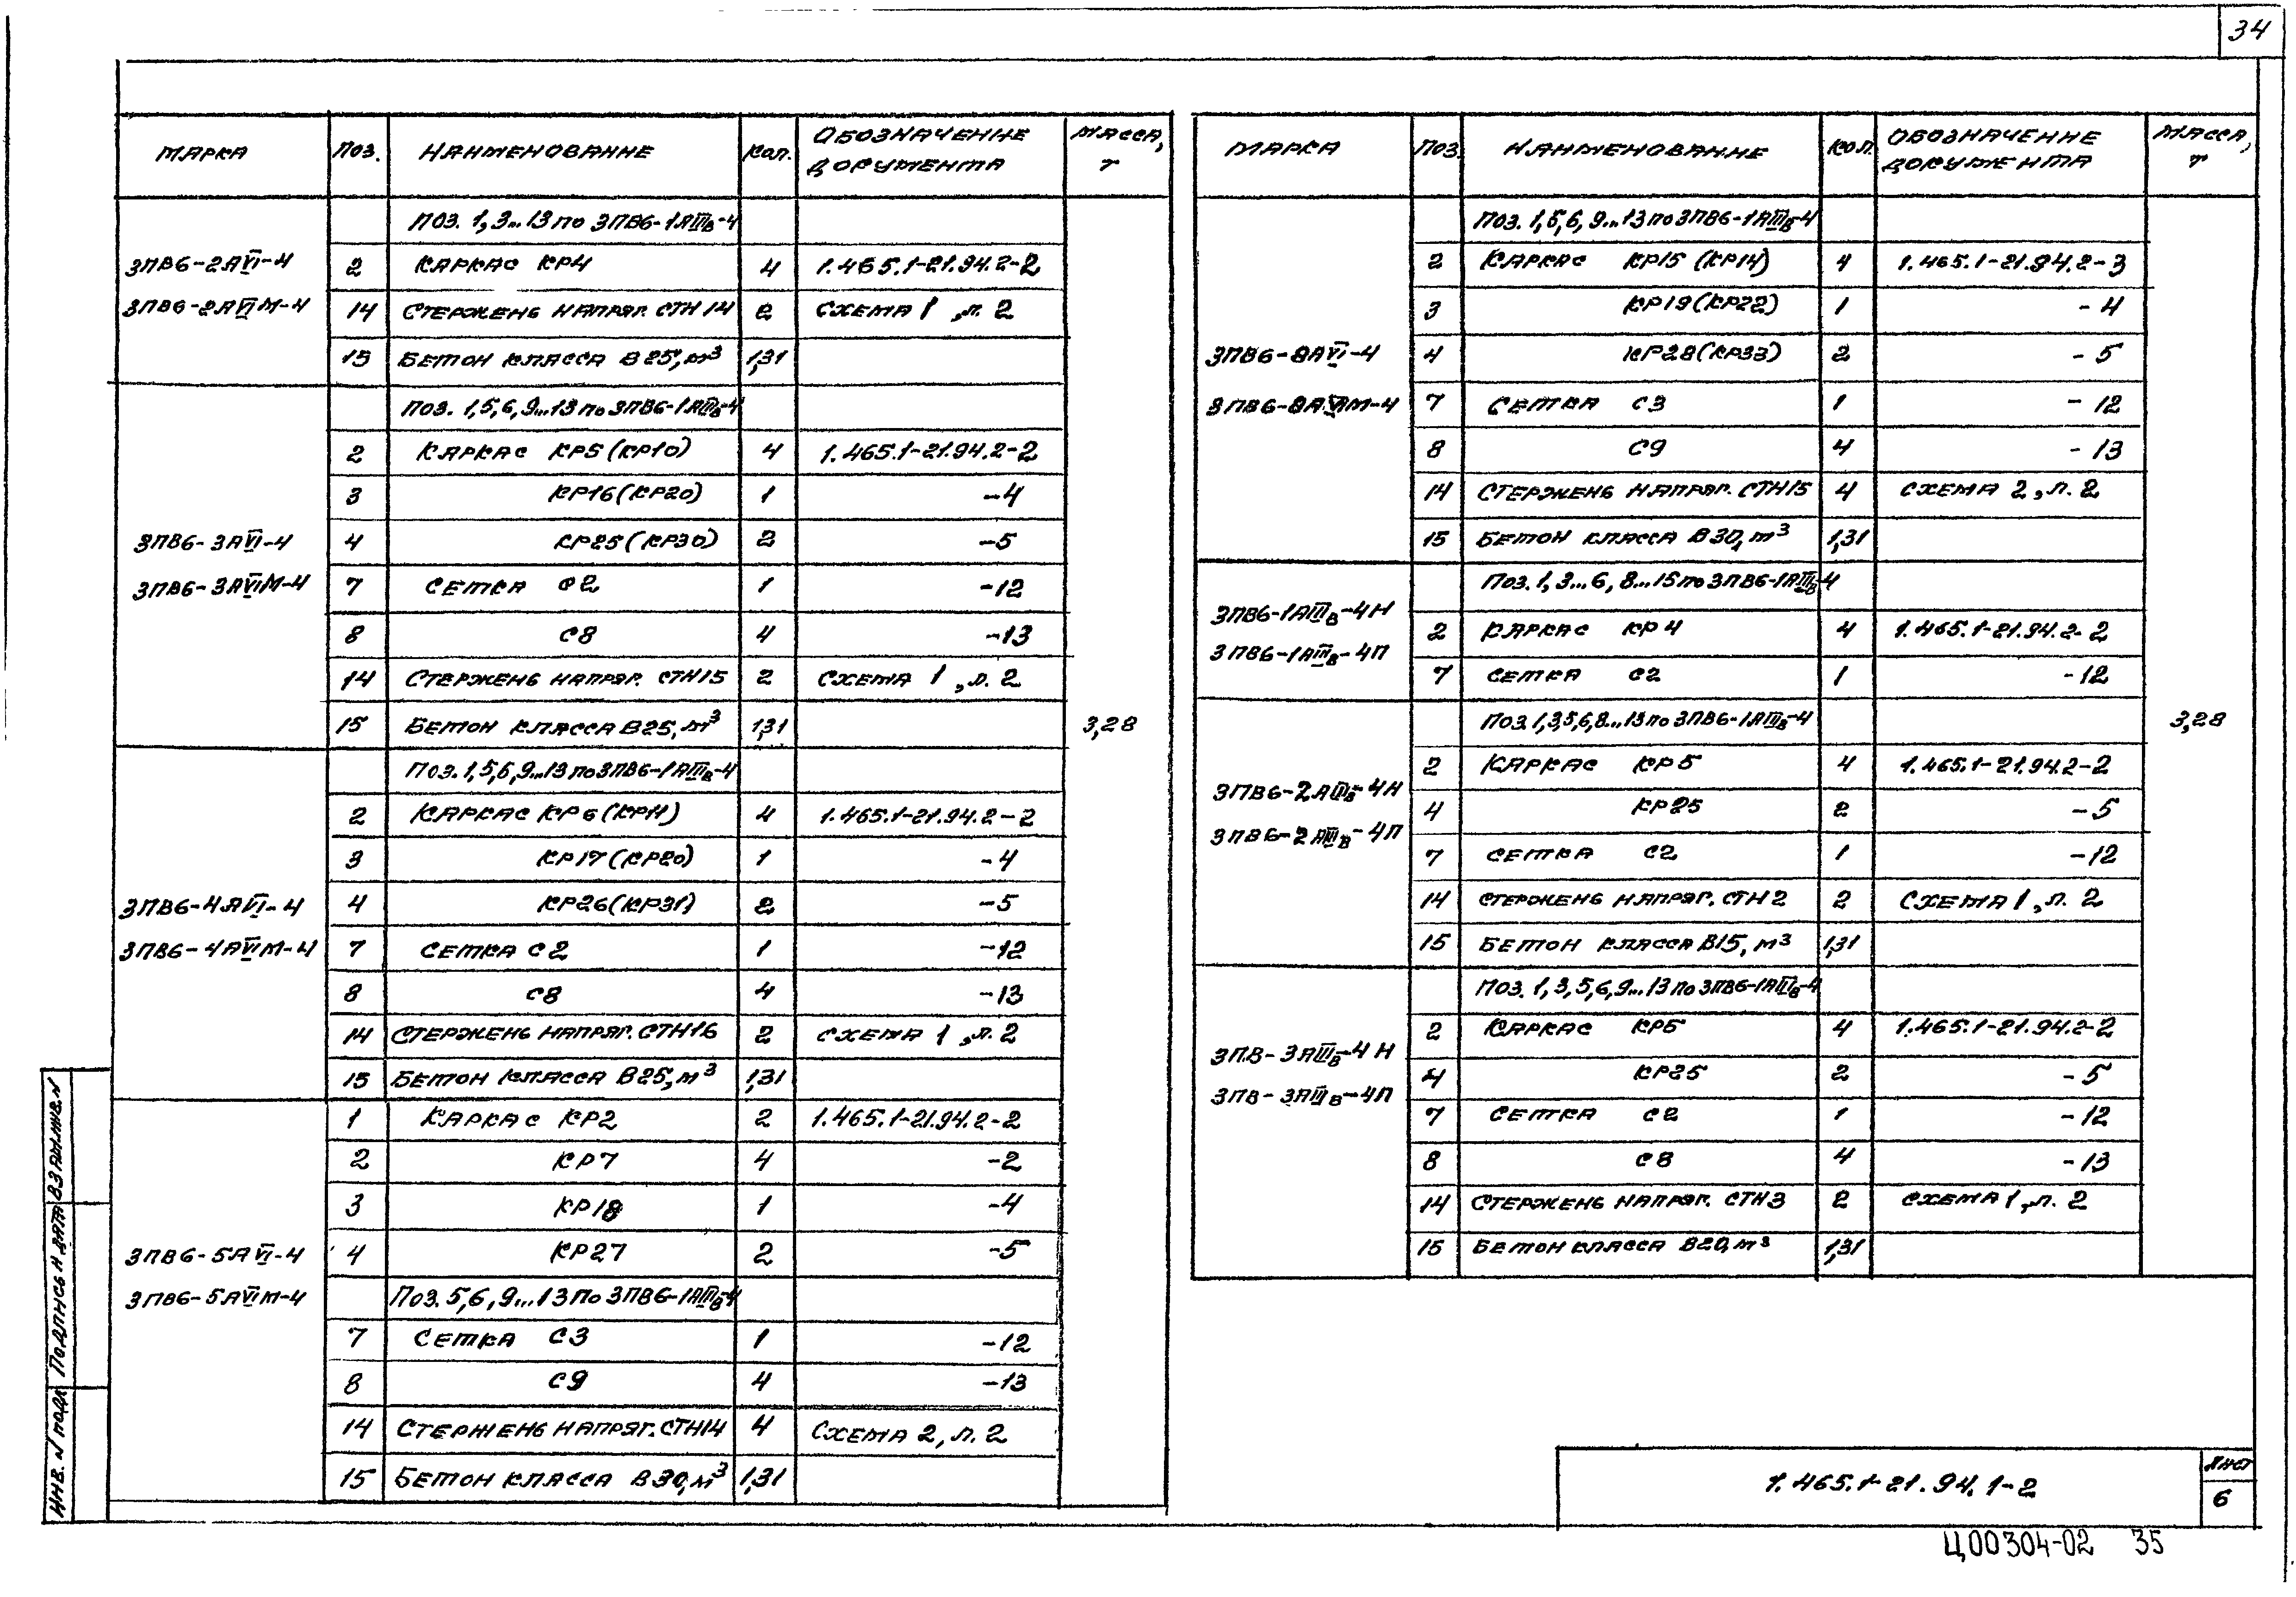 34
МАРКА ПОЗ. НАИМЕНОВАНИЕ КОЛ. ОБОЗНАЧЕНИЕ ДОКУМЕНТА МАССА, Т
ПОЗ. 1,3...13 ПО 3ПВ6-1АIIIв-4
3ПВ6-2АVI-4 2 КАРКАС КР4 4 1.465.1-21.94.2-2
3ПВ6-2АVIМ-4 14 СТЕРЖЕНЬ НАПРЯГ. СТН14 2 СХЕМА 1, Л. 2
15 БЕТОН КЛАССА В25, м³ 1,31
ПОЗ. 1,5,6,9...13 ПО 3ПВ6-1АIIIв-4
2 КАРКАС КР5 (КР10) 4 1.465.1-21.94.2-2
3 КР16 (КР20) 1 -4
3ПВ6-3АVI-4 4 КР25 (КР30) 2 -5
3ПВ6-3АVIМ-4 7 СЕТКА С2 1 -12
8 С8 4 -13
14 СТЕРЖЕНЬ НАПРЯГ. СТН15 2 СХЕМА 1, Л. 2
15 БЕТОН КЛАССА В25, м³ 1,31 3,28
ПОЗ. 1,5,6,9...13 ПО 3ПВ6-1АIIIв-4
2 КАРКАС КР6 (КР11) 4 1.465.1-21.94.2-2
3 КР17 (КР20) 1 -4
3ПВ6-4АVI-4 4 КР26 (КР31) 2 -5
3ПВ6-4АVIМ-4 7 СЕТКА С2 1 -12
8 С8 4 -13
14 СТЕРЖЕНЬ НАПРЯГ. СТН16 2 СХЕМА 1, Л. 2
15 БЕТОН КЛАССА В25, м³ 1,31
1 КАРКАС КР2 2 1.465.1-21.94.2-2
2 КР7 4 -2
3 КР18 1 -4
3ПВ6-5АVI-4 4 КР27 2 -5
3ПВ6-5АVIМ-4 ПОЗ. 5,6,9...13 ПО 3ПВ6-1АIIIв-4
7 СЕТКА С3 1 -12
8 С9 4 -13
14 СТЕРЖЕНЬ НАПРЯГ. СТН14 4 СХЕМА 2, Л. 2
15 БЕТОН КЛАССА В30, м³ 1,31
МАРКА ПОЗ. НАИМЕНОВАНИЕ КОЛ. ОБОЗНАЧЕНИЕ ДОКУМЕНТА МАССА, Т
ПОЗ. 1,5,6,9...13 ПО 3ПВ6-1АIIIв-4
2 КАРКАС КР15 (КР14) 4 1.465.1-21.94.2-3
3 КР19 (КР22) 1 -4
3ПВ6-8АVI-4 4 КР28 (КР33) 2 -5
3ПВ6-8АVIМ-4 7 СЕТКА С3 1 -12
8 С9 4 -13
14 СТЕРЖЕНЬ НАПРЯГ. СТН15 4 СХЕМА 2, Л. 2
15 БЕТОН КЛАССА В30, м³ 1,31
ПОЗ. 1, 3...6, 8...15 ПО 3ПВ6-1АIIIв-4
3ПВ6-1АIIIв-4Н 2 КАРКАС КР4 4 1.465.1-21.94.2-2
3ПВ6-1АIIIв-4П 7 СЕТКА С2 1 -12
ПОЗ. 1,3,5,6,8...13 ПО 3ПВ6-1АIIIв-4 3,28
2 КАРКАС КР5 4 1.465.1-21.94.2-2
3ПВ6-2АIIIв-4Н 4 КР25 2 -5
3ПВ6-2АIIIв-4П 7 СЕТКА С2 1 -12
14 СТЕРЖЕНЬ НАПРЯГ. СТН2 2 СХЕМА 1, Л. 2
15 БЕТОН КЛАССА В15, м³ 1,31
ПОЗ. 1,3,5,6,9...13 ПО 3ПВ6-1АIIIв-4
2 КАРКАС КР5 4 1.465.1-21.94.2-2
3ПВ-3АIIIв-4Н 4 КР25 2 -5
3ПВ-3АIIIв-4П 7 СЕТКА С2 1 -12
8 С8 4 -13
14 СТЕРЖЕНЬ НАПРЯГ. СТН3 2 СХЕМА 1, Л. 2
15 БЕТОН КЛАССА В20, м³ 1,31
ИНВ. N ПОДЛ ПОДПИСЬ И ДАТА ВЗАМ.ИНВ.N
1.465.1-21.94.1-2
ЛИСТ
6
Ц00304-02 35